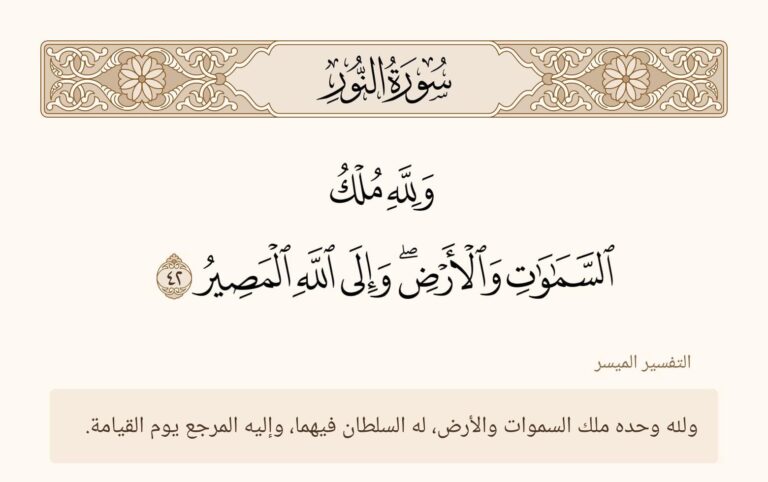 سُورَةُ النُّورِ
وَلِلَّهِ مُلۡكُ
ٱلسَّمَٰوَٰتِ وَٱلۡأَرۡضِۖ وَإِلَى ٱللَّهِ ٱلۡمَصِيرُ ٤٢
التفسير الميسر
ولله وحده ملك السموات والأرض، له السلطان فيهما، وإليه المرجع يوم القيامة.